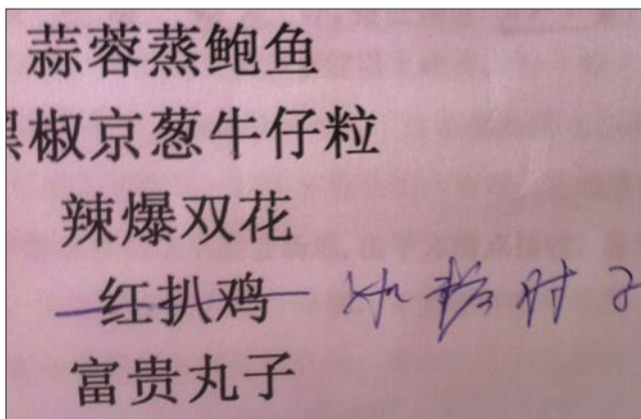 蒜蓉蒸鲍鱼
黑椒京葱牛仔粒
辣爆双花
红扒鸡 冰糖肘子
富贵丸子